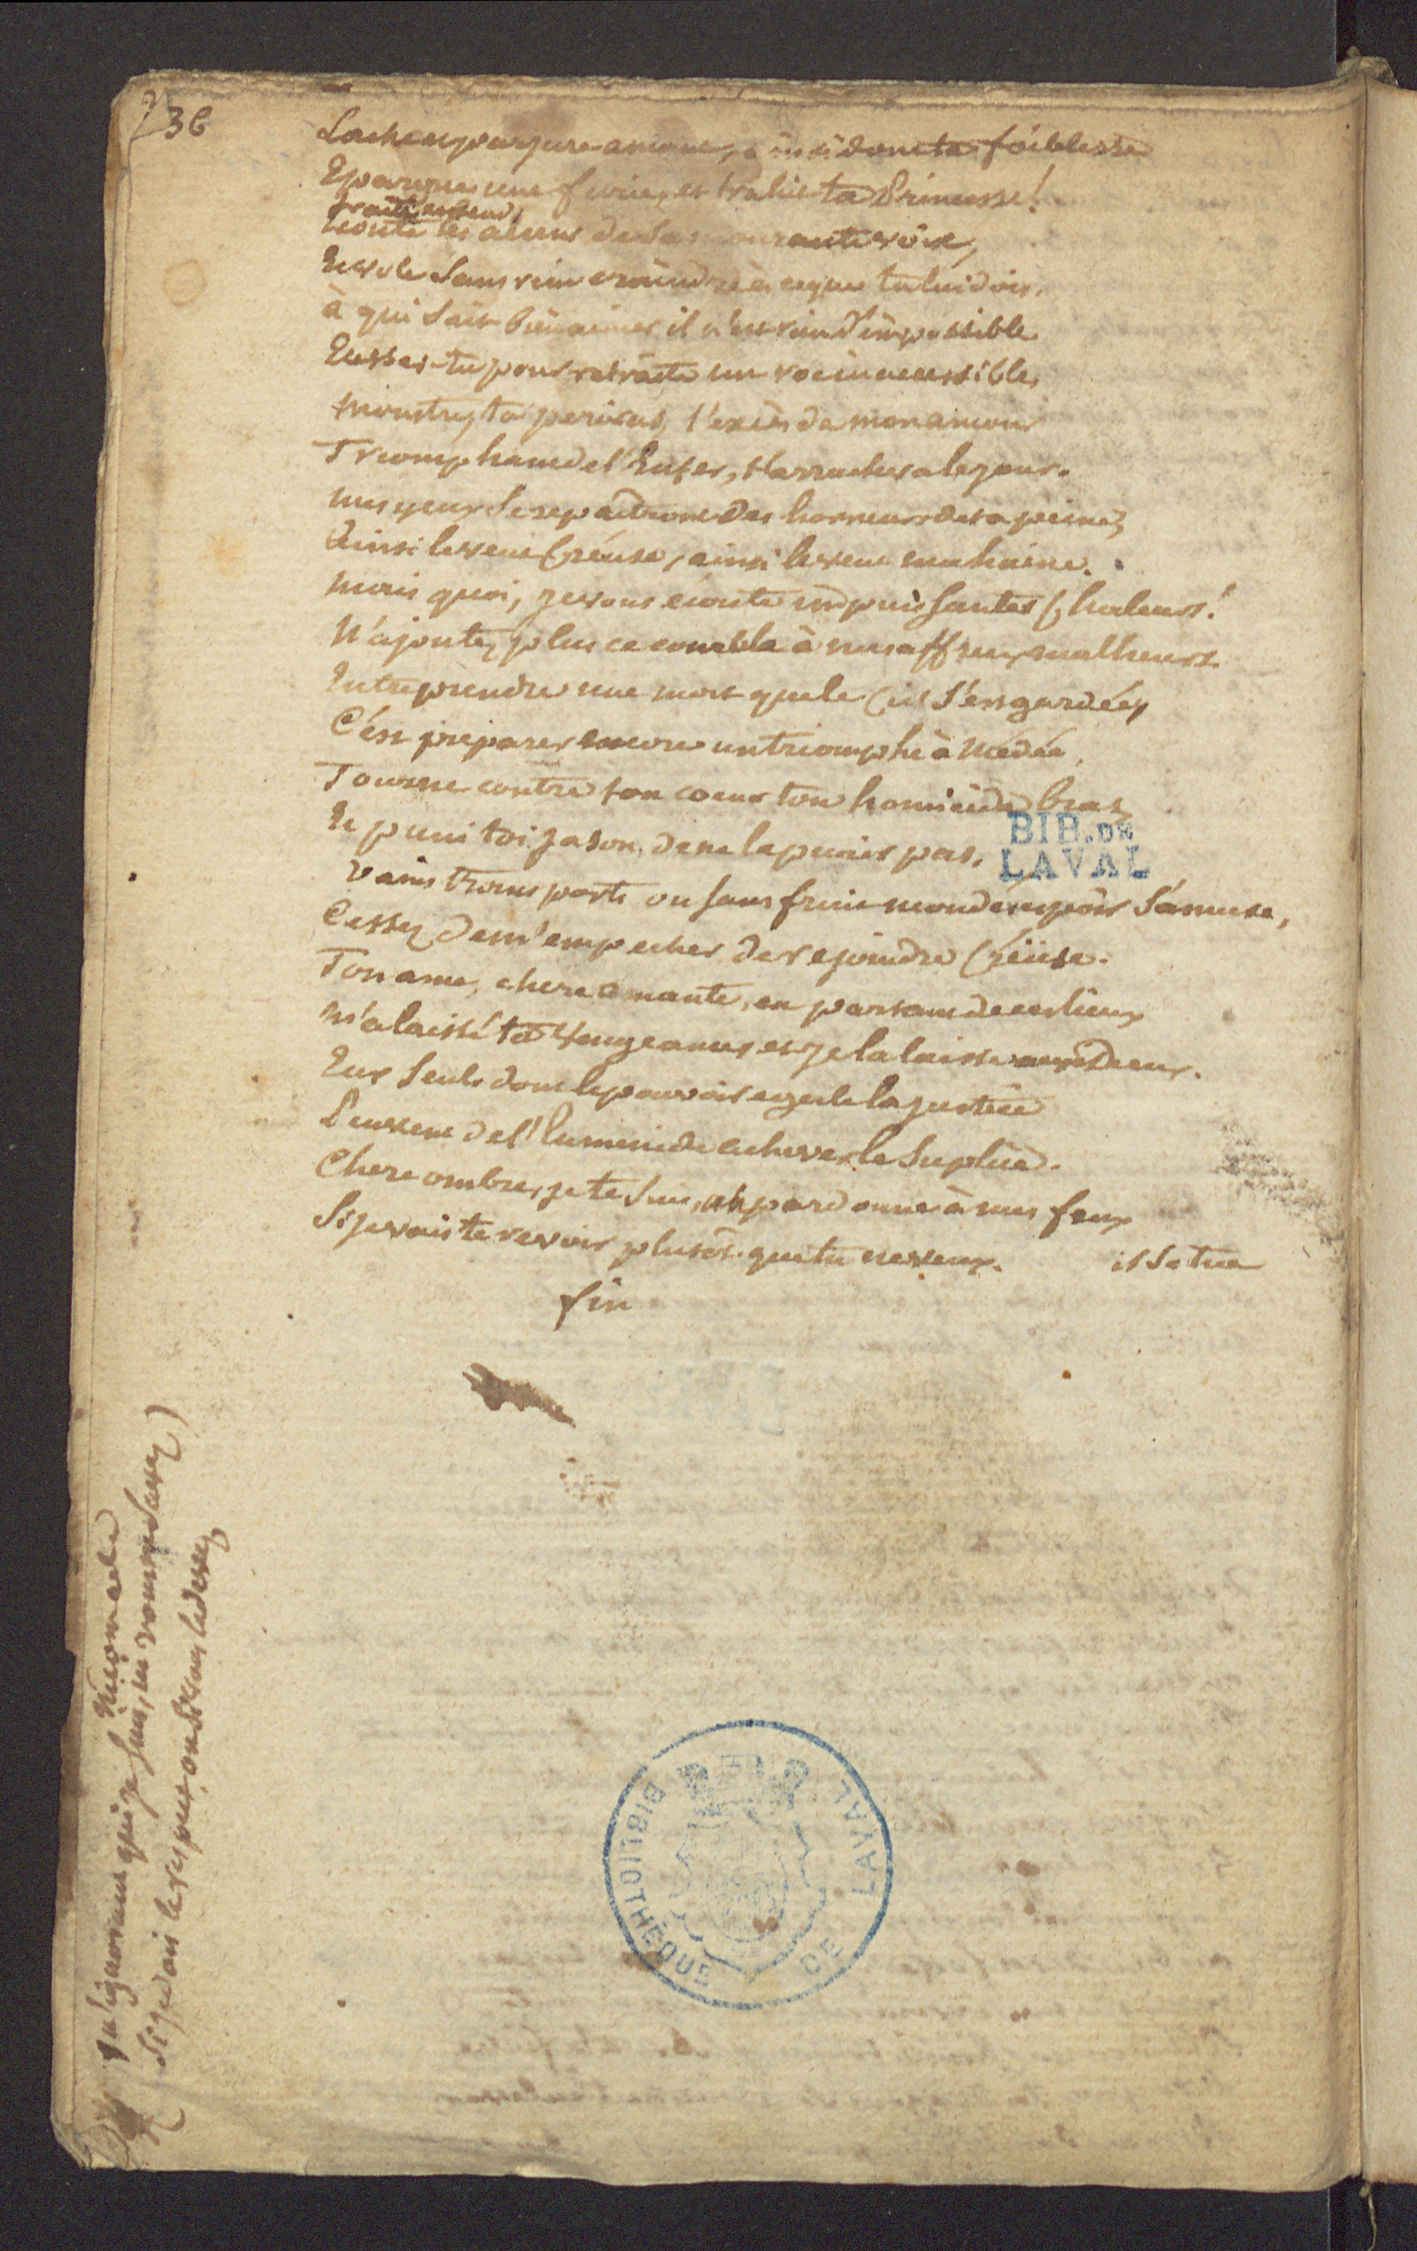 36
Lache et parjure amant, ainsi donc ta foiblesse
Epargne une furie, et trahit ta Princesse!
traitre, entend,
Ecoute les acens de sa mourante voix,
Et vole sans rien craindre à ce que tu lui dois.
à qui sait bien aimer il n'est rien d'impossible
Eusses-tu pour retraite un roc inaccessible,
monstre, tu periras, l'exces de mon amour
Triomphant de l'Enfer, t'arrachera le jour.
mes yeux se repaitront des horreurs de ta peine,
Ainsi le veut Créuse, ainsi le veut ma haine.
mais quoi, je vous écoute impuissantes Chaleurs!
N'ajoutez plus ce comble à mes affreux malheurs.
Entreprendre une mort que le Ciel s'est gardée,
C'est préparer encore un triomphe à Médée,
Tourne contre ton coeur ton homicide bras,
Et puni toi Jason, de ne la punir pas.
vains transports ou sans fruit mon désespoir s'amuse,
Cessez de m'empecher de rejoindre Créüse.
Ton ame, chere amante, en partant de ces lieux
M'a laissé ta vengeance, et je la laisse aux Dieux.
Eux seuls dont le pouvoir egale la justice
Peuvent de l'Eumenide achever le suplice.
Chere ombre, je te suis, et pardonne à mes feux
Si je vais te revoir plutôt que tu ne veux. il se tue
fin
BIB. DE
LAVAL
Nicomede
qui je suis, et vous me
si je vais
BIBLIOTHÈQUE DE LAVAL